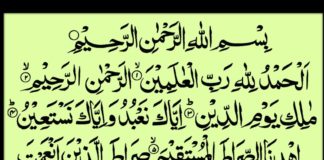 بِسْمِ اللهِ الرَّحْمٰنِ الرَّحِيْمِ
اَلْحَمْدُ لِلّٰهِ رَبِّ الْعٰلَمِيْنَ ۙ۱ الرَّحْمٰنِ الرَّحِيْمِ ۙ۲
مٰلِكِ يَوْمِ الدِّيْنِ ۳ اِيَّاكَ نَعْبُدُ وَاِيَّاكَ نَسْتَعِيْنُ ۴
اِهْدِنَا الصِّرَاطَ الْمُسْتَقِيْمَ ۵ صِرَاطَ الَّذِيْنَ اَنْعَمْتَ